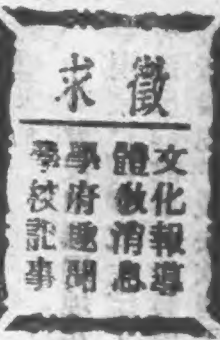 徵求
文化報導
體教消息
學府趣聞
學校記事